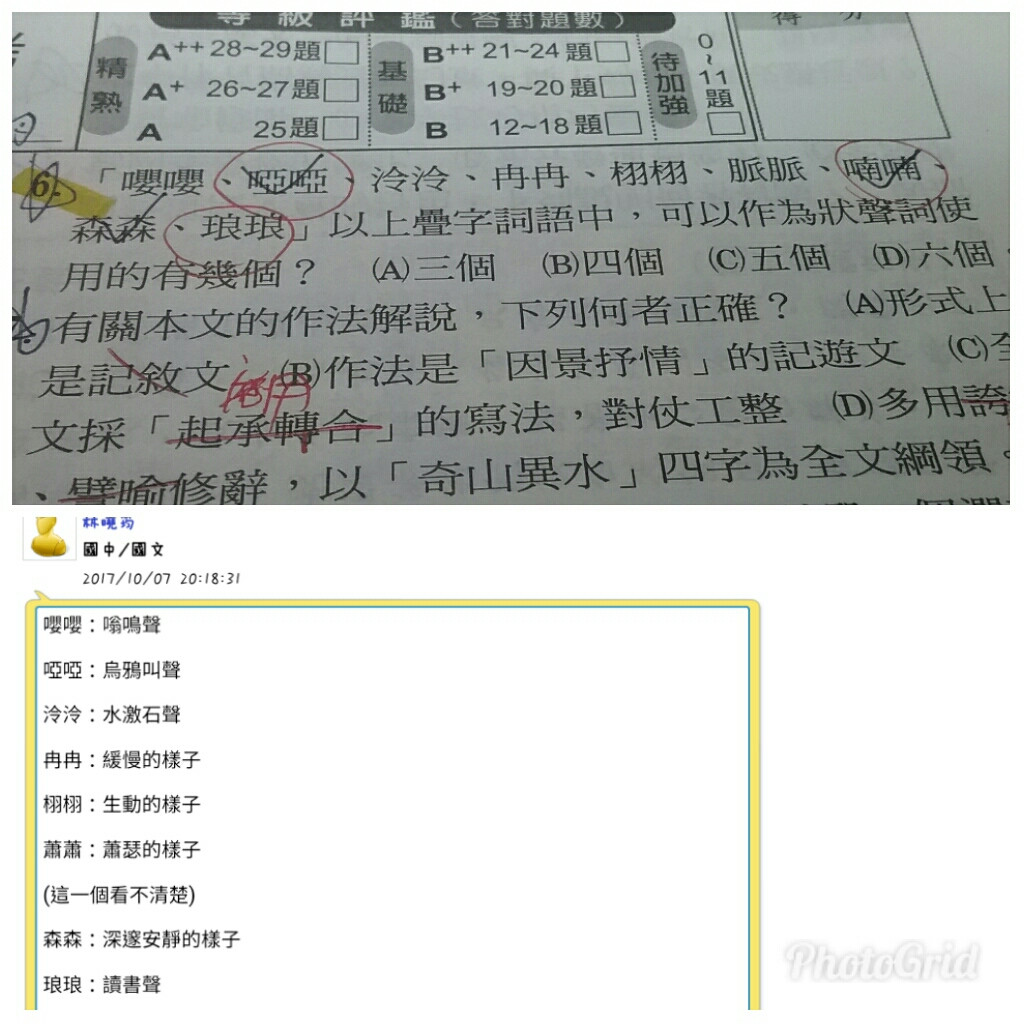 等級評鑑(答對題數)
得分
精熟
A++ 28~29題
A+ 26~27題
A 25題
基礎
B++ 21~24題
B+ 19~20題
B 12~18題
待加強
0~11題
6.「嚶嚶、啞啞、泠泠、冉冉、栩栩、脈脈、喃喃、
森森、琅琅」以上疊字詞語中,可以作為狀聲詞使
用的有幾個? (A)三個 (B)四個 (C)五個 (D)六個
有關本文的作法解說,下列何者正確? (A)形式上
是記敘文 (B)作法是「因景抒情」的記遊文 (C)全
文採「起承轉合」的寫法,對仗工整 (D)多用誇
、譬喻修辭,以「奇山異水」四字為全文綱領。
林曉筠
國中/國文
2017/10/07 20:18:31
嚶嚶:嗡鳴聲
啞啞:烏鴉叫聲
泠泠:水激石聲
冉冉:緩慢的樣子
栩栩:生動的樣子
蕭蕭:蕭瑟的樣子
(這一個看不清楚)
森森:深邃安靜的樣子
琅琅:讀書聲
PhotoGrid